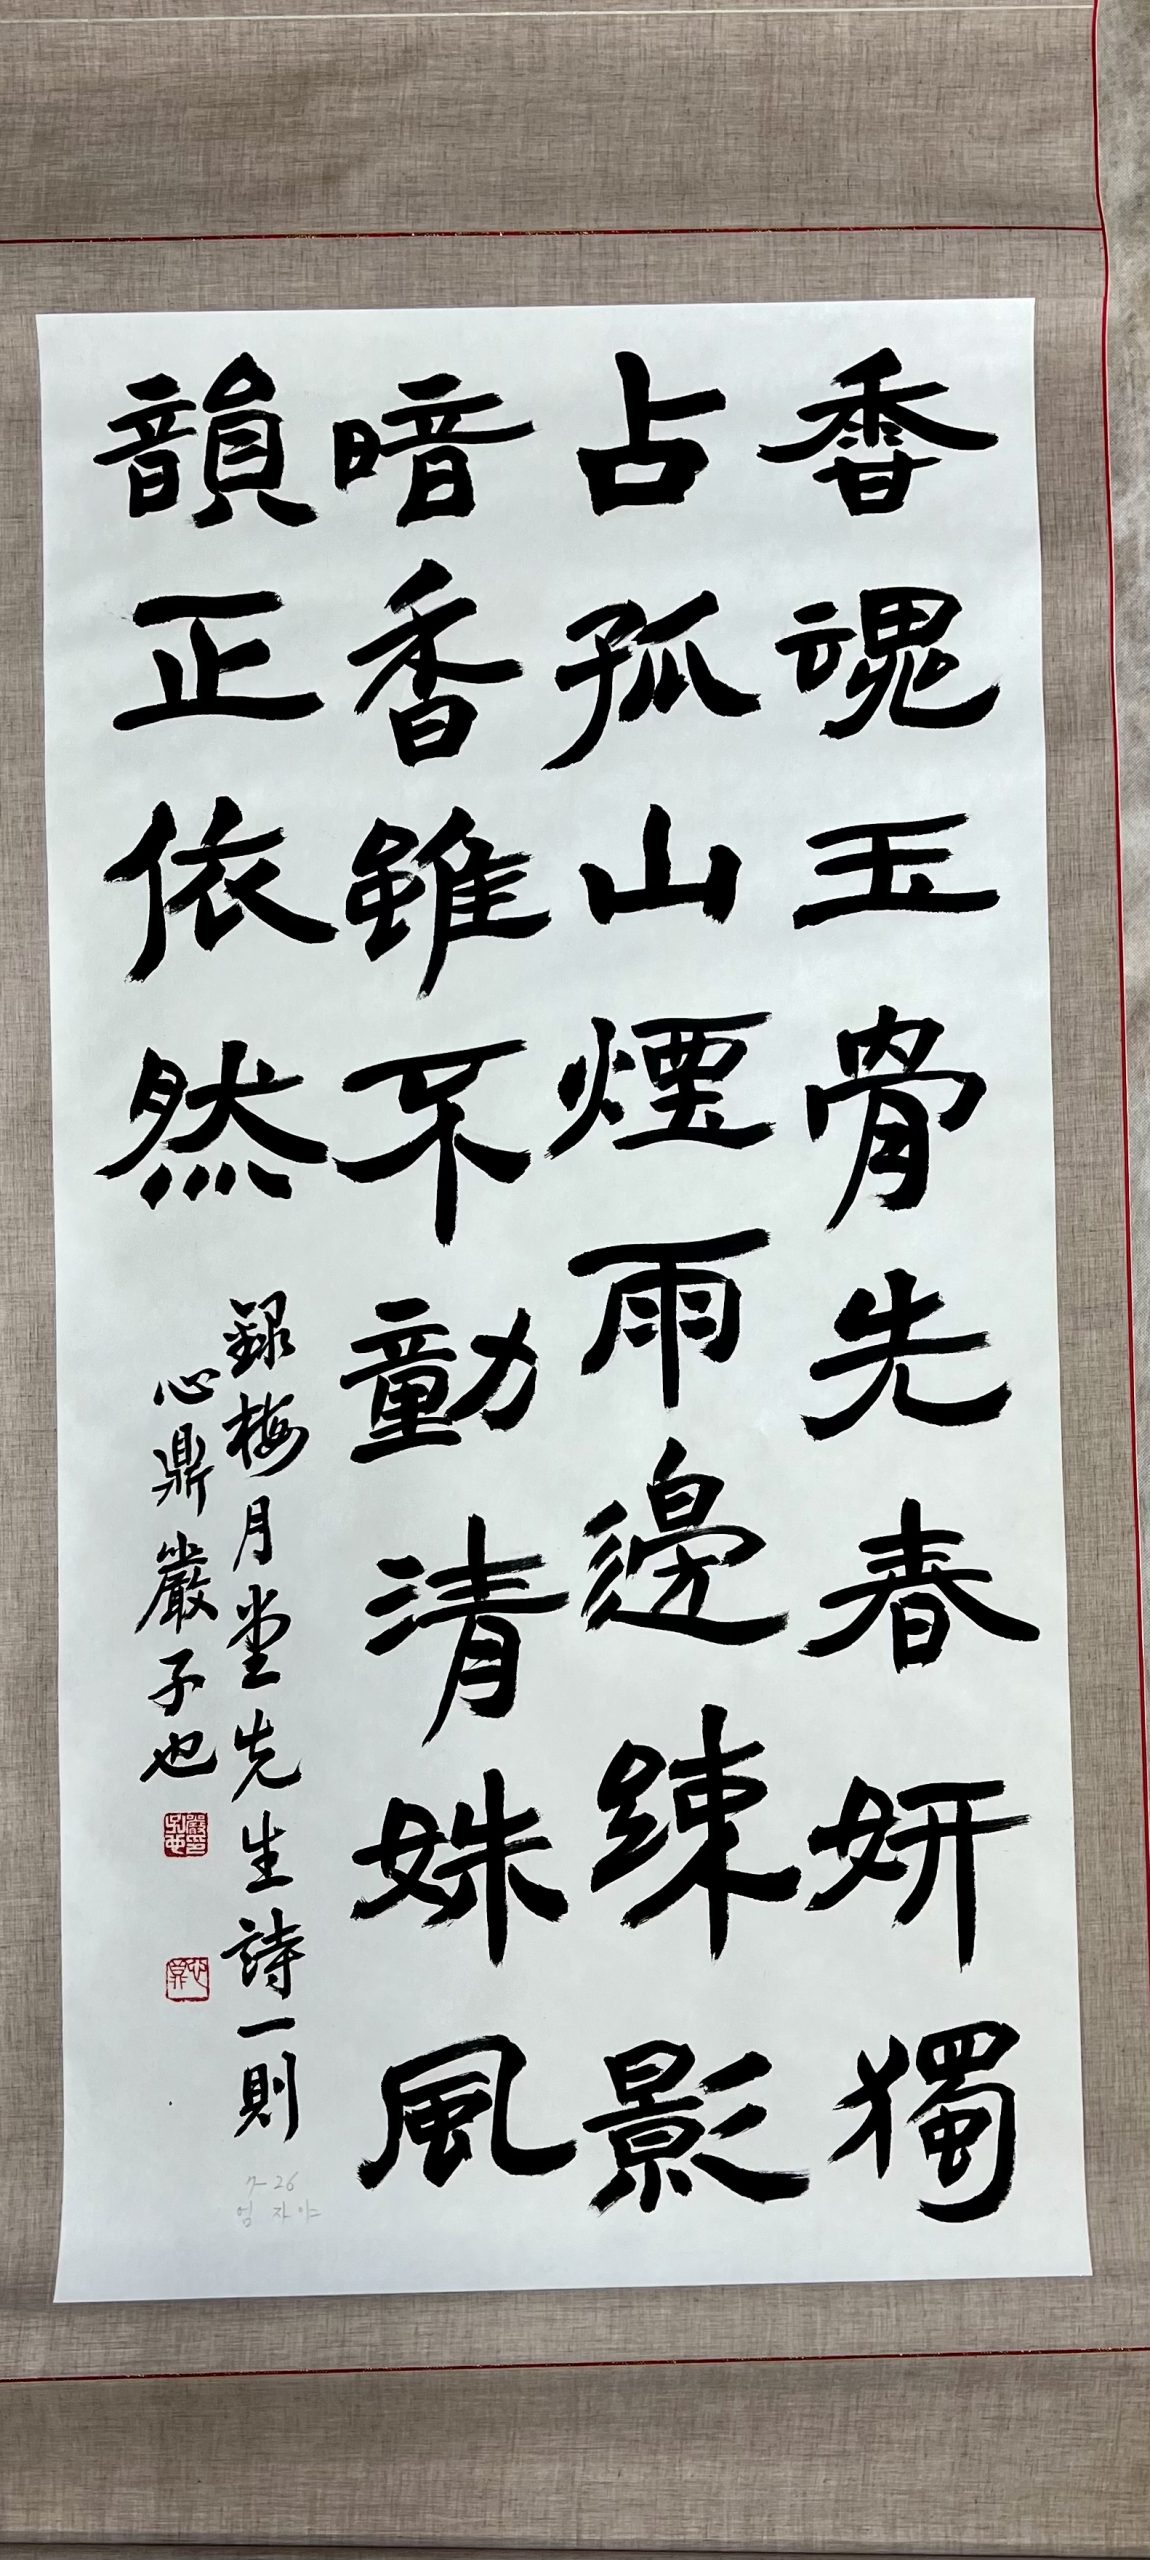 香魂玉骨先春妍獨
占孤山煙雨邊練影
暗香雖不動清姝風
韻正依然
錄梅月堂先生詩一則
心鼎嚴子也
嚴印子也
心鼎
7-26
엄자야